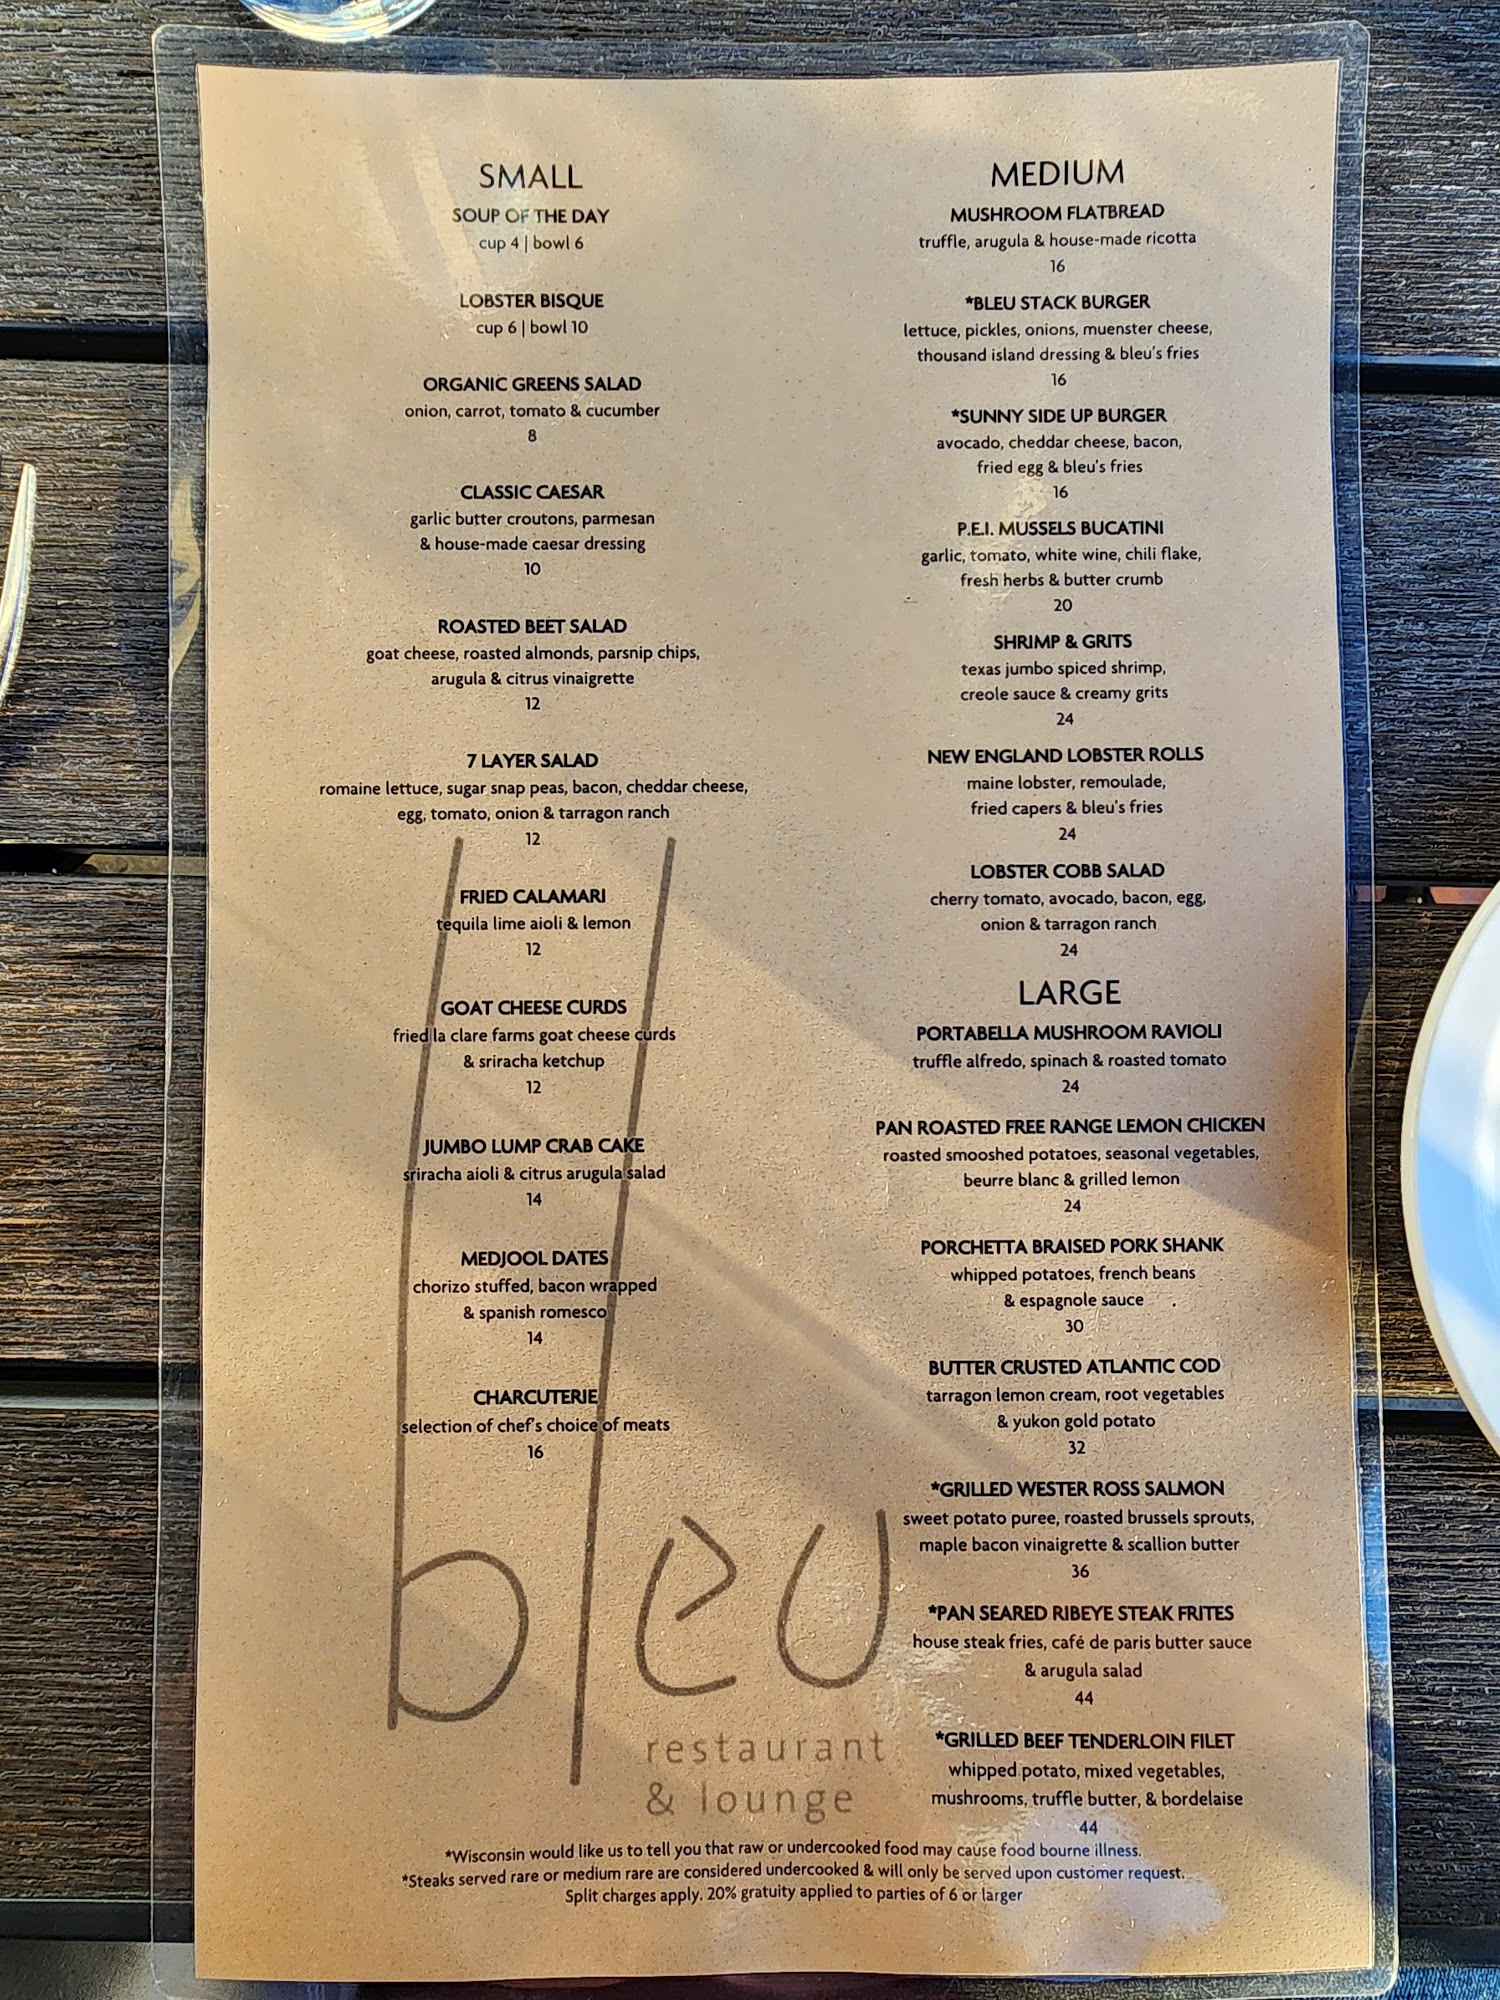 SMALL
SOUP OF THE DAY
cup 4 | bowl 6
LOBSTER BISQUE
cup 6 | bowl 10
ORGANIC GREENS SALAD
onion, carrot, tomato & cucumber
8
CLASSIC CAESAR
garlic butter croutons, parmesan
& house-made caesar dressing
10
ROASTED BEET SALAD
goat cheese, roasted almonds, parsnip chips,
arugula & citrus vinaigrette
12
7 LAYER SALAD
romaine lettuce, sugar snap peas, bacon, cheddar cheese,
egg, tomato, onion & tarragon ranch
12
FRIED CALAMARI
tequila lime aioli & lemon
12
GOAT CHEESE CURDS
fried la clare farms goat cheese curds
& sriracha ketchup
12
JUMBO LUMP CRAB CAKE
sriracha aioli & citrus arugula salad
14
MEDJOOL DATES
chorizo stuffed, bacon wrapped
& spanish romesco
14
CHARCUTERIE
selection of chef's choice of meats
16
MEDIUM
MUSHROOM FLATBREAD
truffle, arugula & house-made ricotta
16
*BLEU STACK BURGER
lettuce, pickles, onions, muenster cheese,
thousand island dressing & bleu's fries
16
*SUNNY SIDE UP BURGER
avocado, cheddar cheese, bacon,
fried egg & bleu's fries
16
P.E.I. MUSSELS BUCATINI
garlic, tomato, white wine, chili flake,
fresh herbs & butter crumb
20
SHRIMP & GRITS
texas jumbo spiced shrimp,
creole sauce & creamy grits
24
NEW ENGLAND LOBSTER ROLLS
maine lobster, remoulade,
fried capers & bleu's fries
24
LOBSTER COBB SALAD
cherry tomato, avocado, bacon, egg,
onion & tarragon ranch
24
LARGE
PORTABELLA MUSHROOM RAVIOLI
truffle alfredo, spinach & roasted tomato
24
PAN ROASTED FREE RANGE LEMON CHICKEN
roasted smooshed potatoes, seasonal vegetables,
beurre blanc & grilled lemon
24
PORCHETTA BRAISED PORK SHANK
whipped potatoes, french beans
& espagnole sauce
30
BUTTER CRUSTED ATLANTIC COD
tarragon lemon cream, root vegetables
& yukon gold potato
32
*GRILLED WESTER ROSS SALMON
sweet potato puree, roasted brussels sprouts,
maple bacon vinaigrette & scallion butter
36
*PAN SEARED RIBEYE STEAK FRITES
house steak fries, café de paris butter sauce
& arugula salad
44
*GRILLED BEEF TENDERLOIN FILET
whipped potato, mixed vegetables,
mushrooms, truffle butter, & bordelaise
44
bleu
restaurant
& lounge
*Wisconsin would like us to tell you that raw or undercooked food may cause food bourne illness.
*Steaks served rare or medium rare are considered undercooked & will only be served upon customer request.
Split charges apply. 20% gratuity applied to parties of 6 or larger